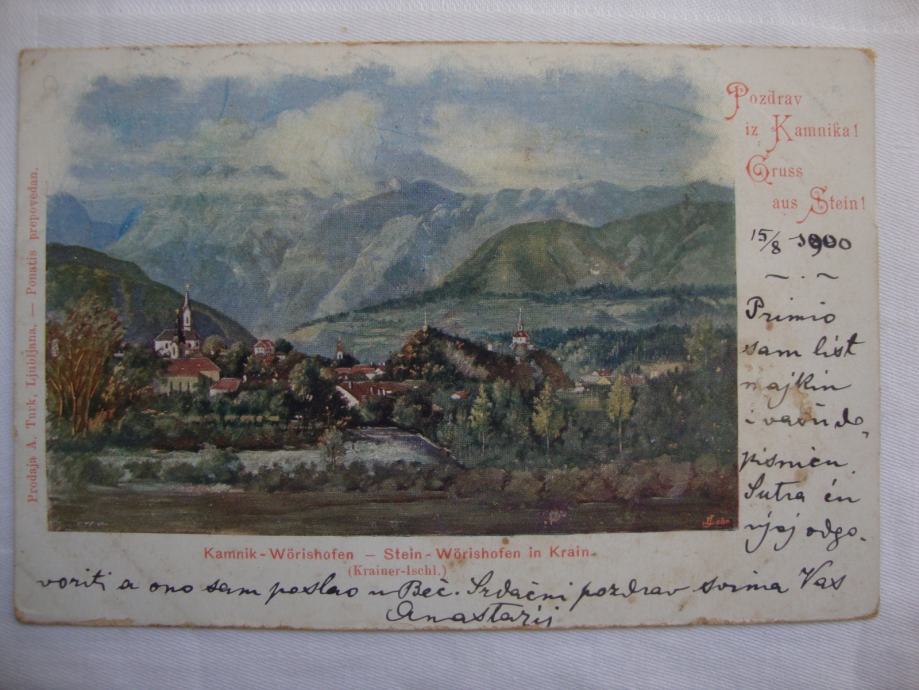 Pozdrav
iz Kamnika!
Gruss
aus Stein!
15/8 1900
Primio
sam list
majkin
i vašu do-
pisnicu.
Sutra ću
njoj odgo-
voriti a ono sam poslao u Beč. Srdačni pozdrav svima Vaš
Anastazij
Kamnik-Wörishofen – Stein-Wörishofen in Krain.
(Krainer-Ischl.)
Prodaja A. Turk, Ljubljana. — Ponatis prepovedan.